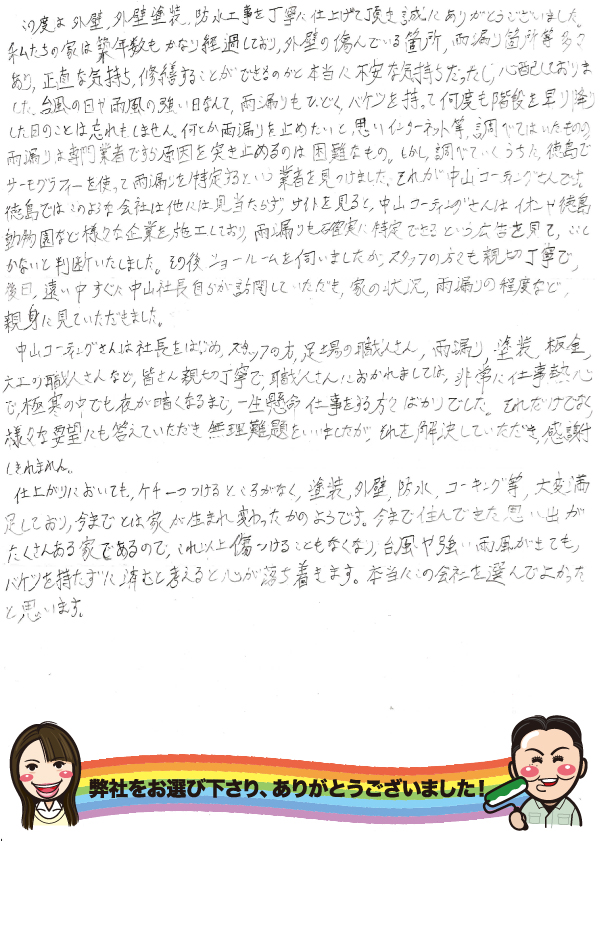 この度は外壁、外壁塗装、防水工事を丁寧に仕上げて頂き誠にありがとうございました。
私たちの家は築年数もかなり経過しており、外壁の傷んでいる箇所、雨漏り箇所等多々
あり、正直な気持ち、修繕することができるのかと本当に不安な気持ちだったし、心配しておりま
した。台風の日や雨風の強い日なんて、雨漏りもひどく、バケツを持って何度も階段を昇り降り
した日のことは忘れもしません。何とか雨漏りを止めたいと思いインターネット等、調べてはいたものの
雨漏りは専門業者ですら原因を突き止めるのは困難なもの。しかし、調べていくうちに、徳島で
サーモグラフィーを使って雨漏りを特定するという業者を見つけました。それが中山コーティングさんです。
徳島ではこのような会社は他には見当たらず、サイトを見ると、中山コーティングさんはイオンや徳島
動物園など様々な企業を施工しており、雨漏りも確実に特定できるという広告を見て、ここし
かないと判断いたしました。その後ショールームを伺いましたが、スタッフの方々も親切丁寧で、
後日、遠い中すぐに中山社長自らが訪問していただき、家の状況、雨漏りの程度など、
親身に見ていただきました。
中山コーティングさんは社長をはじめ、スタッフの方、足場の職人さん、雨漏り、塗装、板金、
大工の職人さんなど、皆さん親切丁寧で、職人さんにおかれましては、非常に仕事熱心
で、極寒の中でも夜が暗くなるまで、一生懸命仕事をする方々ばかりでした。それだけでなく、
様々な要望にも答えていただき無理難題をいいましたが、それを解決していただき、感謝
しきれません。
仕上がりにおいても、ケチ一つつけるところがなく、塗装、外壁、防水、コーキング等、大変満
足しており、今までとは家が生まれ変わったかのようです。今まで住んできた思い出が
たくさんある家であるので、これ以上傷つけることもなくなり、台風や強い雨風がきても、
バケツを持たずに済むと考えると心が落ち着きます。本当にこの会社を選んでよかった
と思います。
弊社をお選び下さり、ありがとうございました！